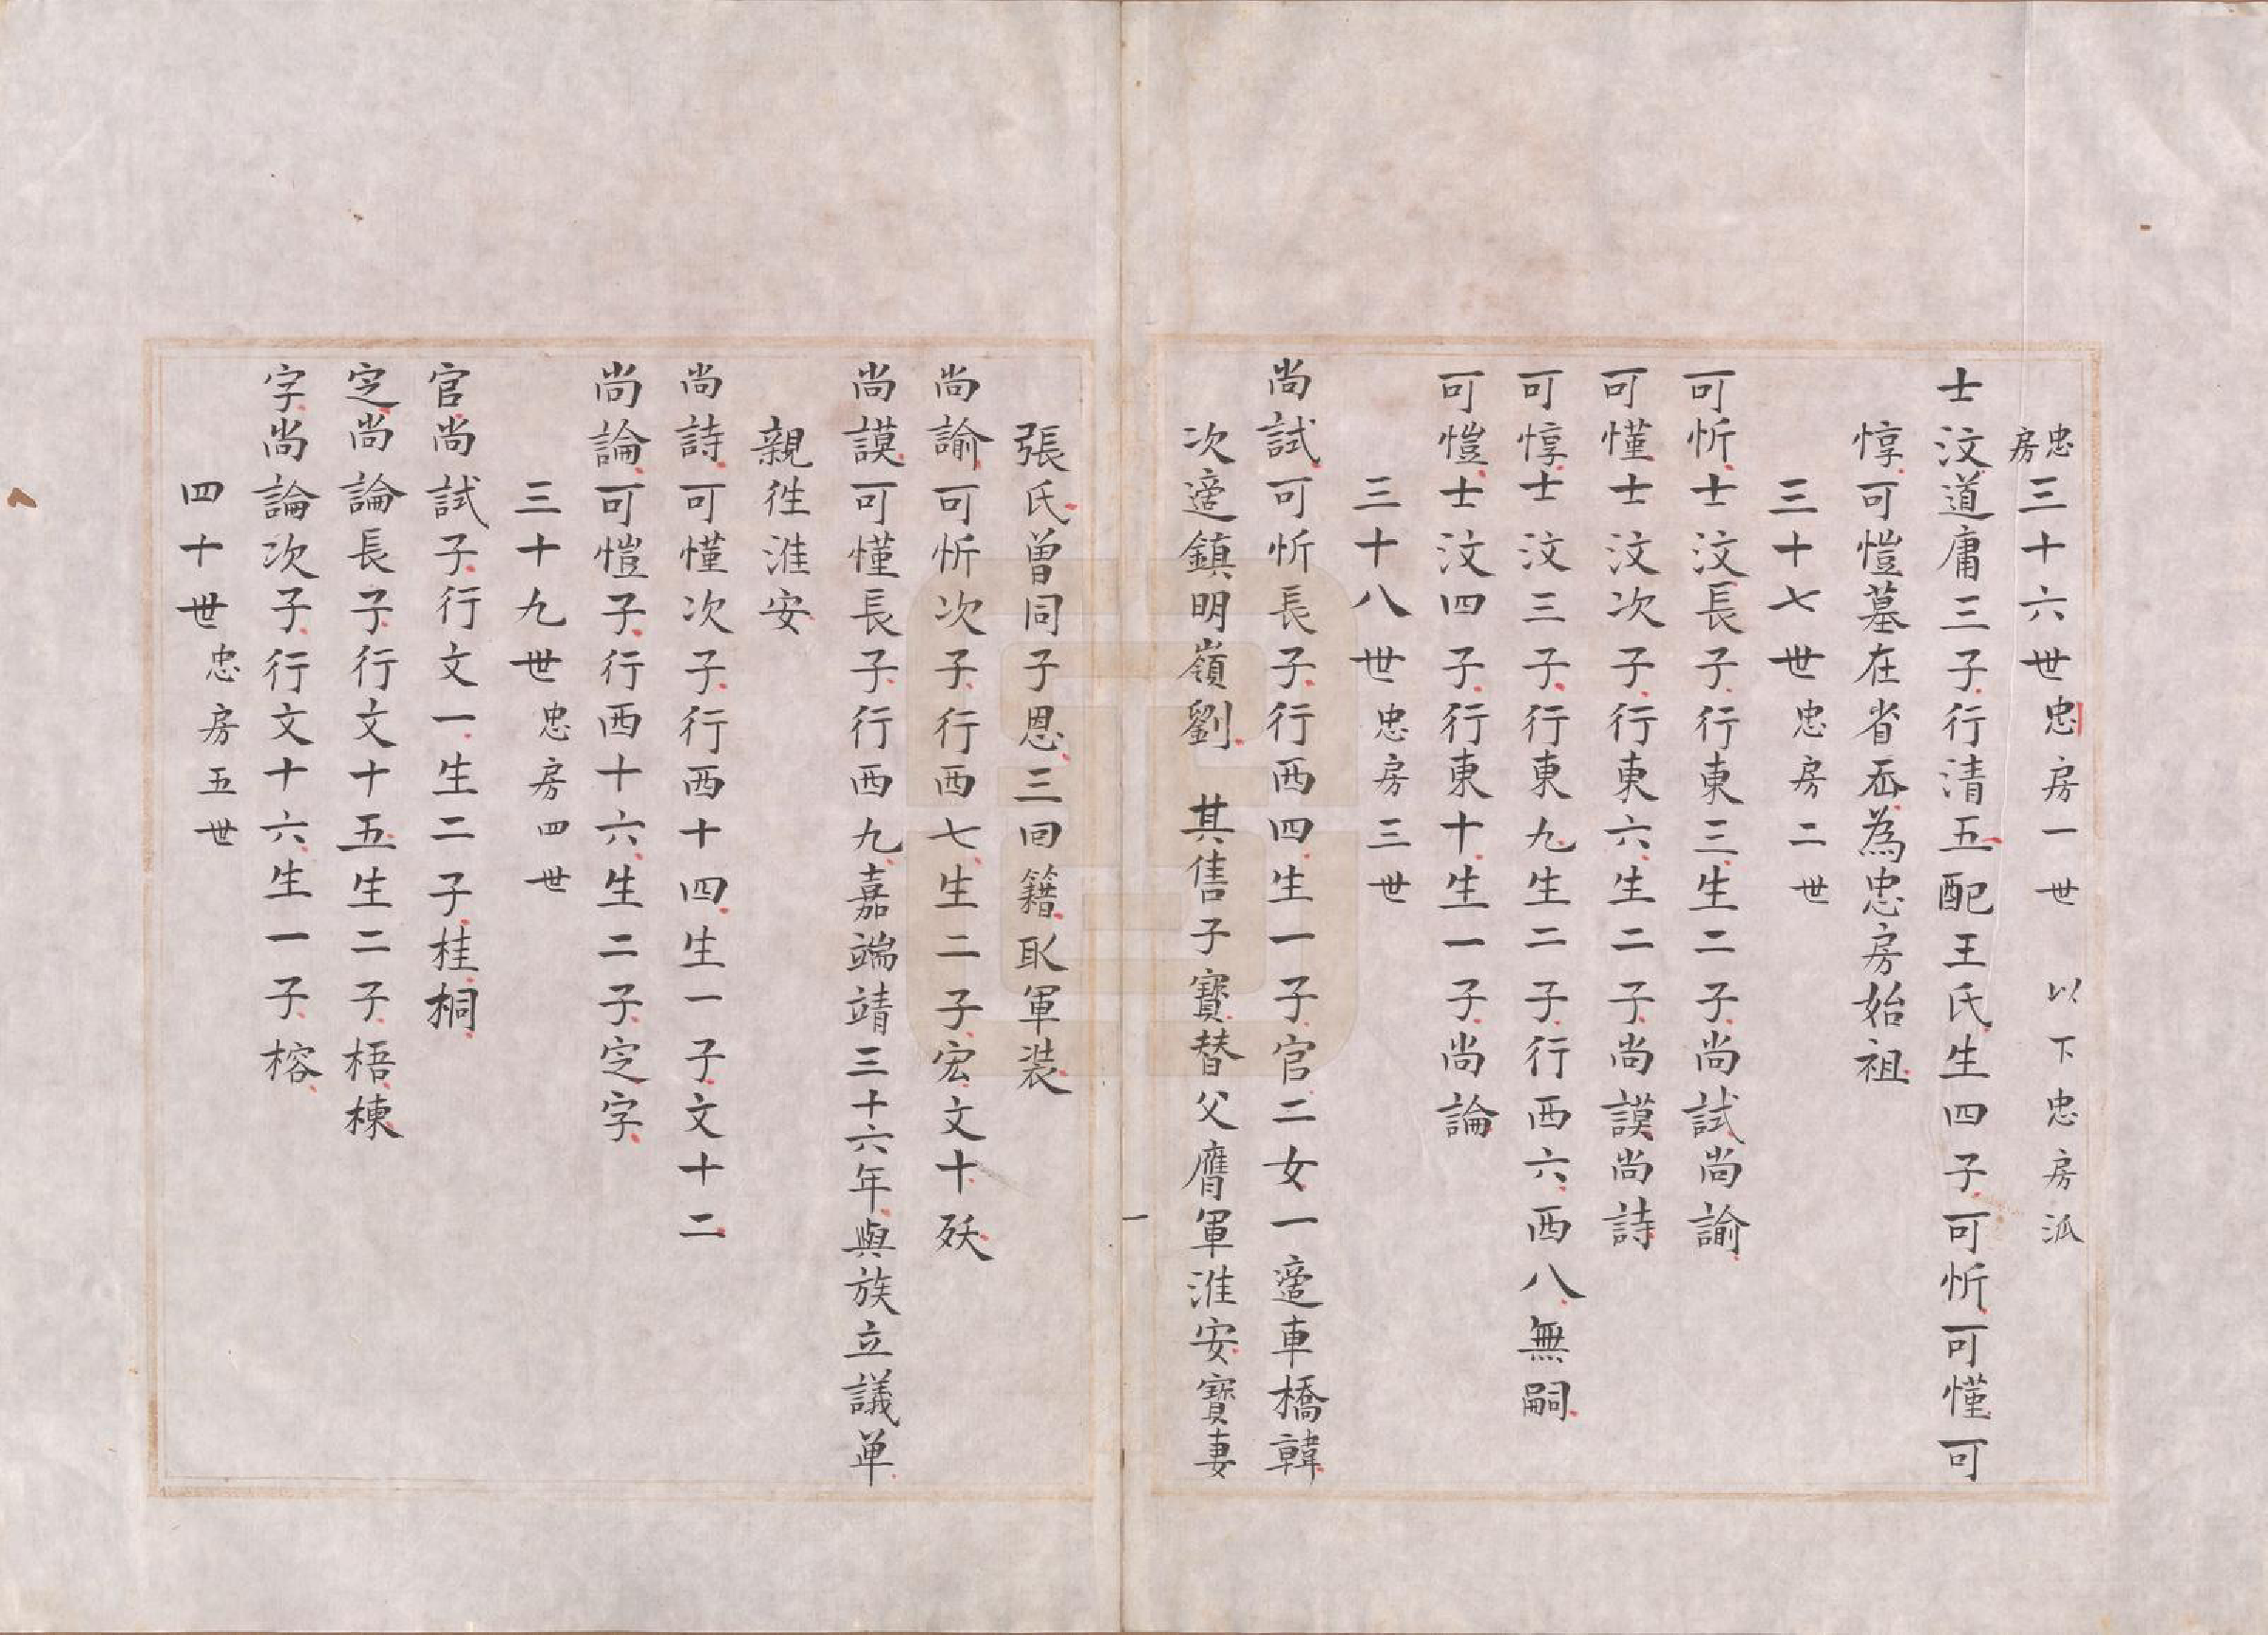 忠房三十六世忠房一世 以下忠房派
士汶道庸三子行清五配王氏生四子可忻可慬可
惇可愷墓在省岙為忠房始祖
三十七世忠房二世
可忻士汶長子行東三生二子尚試尚諭
可慬士汶次子行東六生二子尚謨尚詩
可惇士汶三子行東九生二子行西六西八無嗣
可愷士汶四子行東十生一子尚論
三十八世忠房三世
尚試可忻長子行西四生一子官二女一適車橋韓
次適鎮明嶺劉 其售子寶替父膺軍淮安寶妻
一
張氏曾同子恩三回籍取軍裝
尚諭可忻次子行西七生二子宏文十殀
尚謨可慬長子行西九嘉端靖三十六年與族立議单
親徃淮安
尚詩可慬次子行西十四生一子文十二
尚論可愷子行西十六生二子㝎字
三十九世忠房四世
官尚試子行文一生二子桂桐
㝎尚論長子行文十五生二子梧棟
字尚論次子行文十六生一子榕
四十世忠房五世